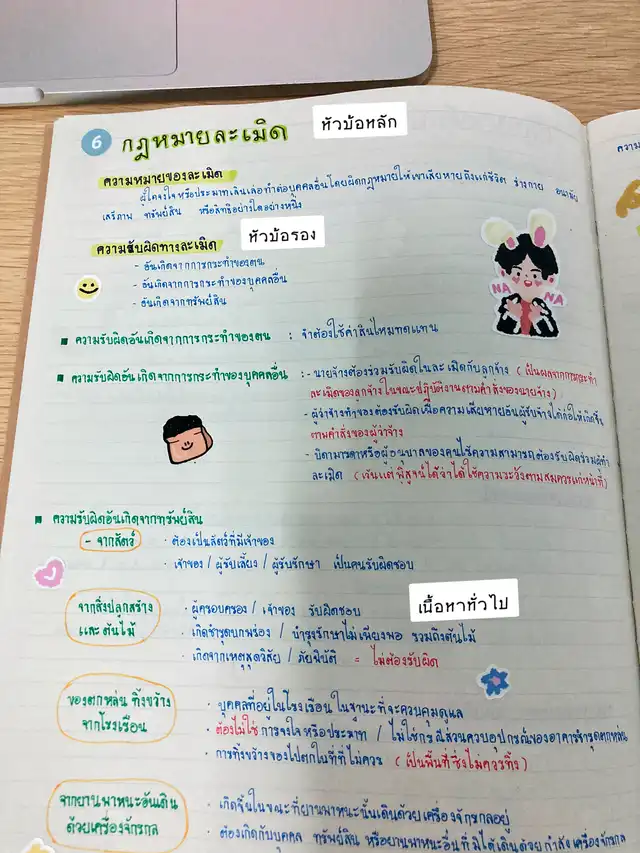 6 กฎหมายละเมิด
หัวข้อหลัก
ความหมายของละเมิด
ผู้ใดจงใจ หรือประมาทเลินเล่อ ทำต่อบุคคลอื่นโดยผิดกฎหมายให้เขาเสียหายถึงแก่ชีวิต ร่างกาย อนามัย
เสรีภาพ ทรัพย์สิน หรือสิทธิอย่างใดอย่างหนึ่ง
ความรับผิดทางละเมิด
หัวข้อรอง
- อันเกิดจากการกระทำของตน
- อันเกิดจากการกระทำของบุคคลอื่น
- อันเกิดจากทรัพย์สิน
NA NA
▪ ความรับผิดอันเกิดจากการกระทำของตน : จำต้องใช้ค่าสินไหมทดแทน
▪ ความรับผิดอันเกิดจากการกระทำของบุคคลอื่น : - นายจ้างต้องร่วมรับผิดในละเมิดกับลูกจ้าง (เป็นผลจากการกระทำ
ละเมิดของลูกจ้างในขณะปฏิบัติงานตามคำสั่งของนายจ้าง)
- ผู้ว่าจ้างทำของต้องรับผิดเมื่อความเสียหายอันผู้รับจ้างได้ก่อให้เกิดขึ้น
ตามคำสั่งของผู้ว่าจ้าง
- บิดามารดาหรือผู้อนุบาลของคนไร้ความสามารถต้องรับผิดร่วมผู้ทำ
ละเมิด (เว้นแต่พิสูจน์ได้ว่าได้ใช้ความระวังตามสมควรแก่หน้าที่)
▪ ความรับผิดอันเกิดจากทรัพย์สิน
- จากสัตว์
· ต้องเป็นสัตว์ที่มีเจ้าของ
· เจ้าของ / ผู้รับเลี้ยง / ผู้รับรักษา เป็นคนรับผิดชอบ
เนื้อหาทั่วไป
จากสิ่งปลูกสร้าง
และต้นไม้
· ผู้ครอบครอง / เจ้าของ รับผิดชอบ
· เกิดชำรุดบกพร่อง / บำรุงรักษาไม่เพียงพอ รวมถึงต้นไม้
· เกิดจากเหตุสุดวิสัย / ภัยพิบัติ = ไม่ต้องรับผิด
ของตกหล่น ทิ้งขว้าง
จากโรงเรือน
· บุคคลที่อยู่ในโรงเรือน ในฐานะที่จะควบคุมดูแล
· ต้องไม่ใช่ การจงใจ หรือประมาท / ไม่ใช่กรณีส่วนควบอุปกรณ์ของอาคารชำรุดตกหล่น
· การทิ้งขว้างของไปตกในที่ที่ไม่ควร (เป็นพื้นที่ซึ่งไม่ควรทิ้ง)
จากยานพาหนะอันเดิน
ด้วยเครื่องจักรกล
· เกิดขึ้นในขณะที่ยานพาหนะนั้นเดินด้วยเครื่องจักรกลอยู่
· ต้องเกิดกับบุคคล ทรัพย์สิน หรือยานพาหนะอื่นที่มิได้เดินด้วยกำลังเครื่องจักรกล